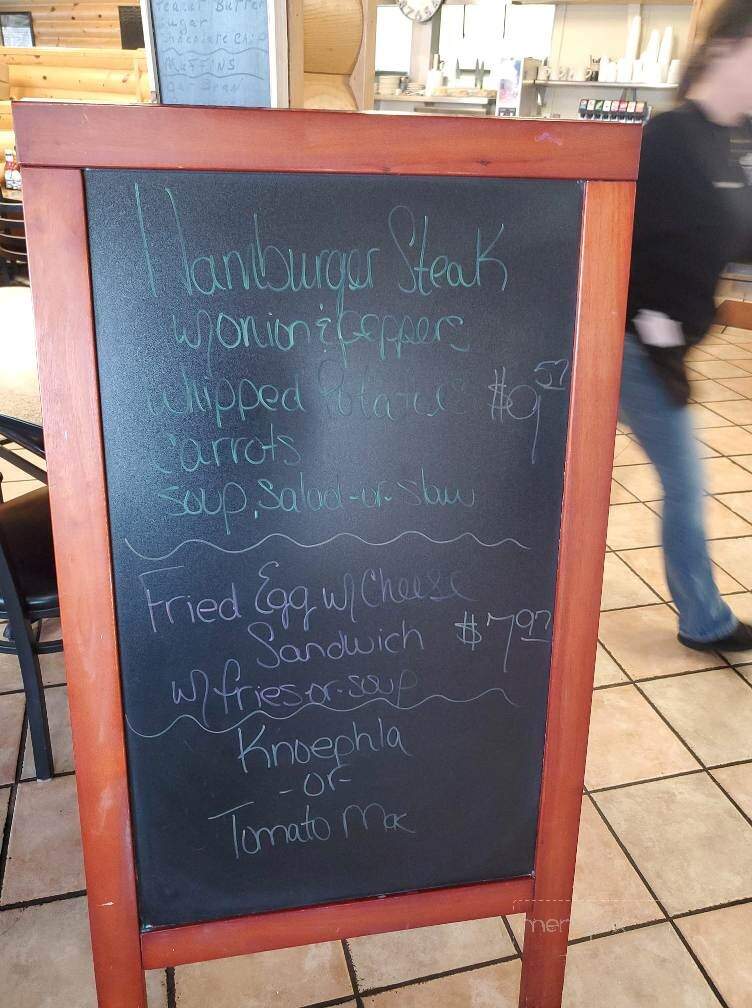 Peanut Butter
Sugar
Chocolate Chip
Muffins
Oat Bran
Hamburger Steak
w/onion & peppers
whipped Potatoes $9 57
carrots
soup, salad -or- slaw
Fried Egg w/ Cheese
Sandwich $7 97
w/ fries -or- soup
Knoephla
-or-
Tomato Mac